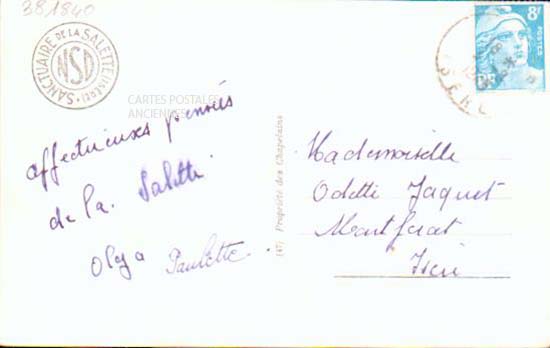 381840
SANCTUAIRE DE LA SALETTE (ISÈRE)
NSD
8F
POSTES
RF
ISERE
CARTES POSTALES
ANCIENNES
affectueuses pensées
de la Salette
Olga Paulette
(47) Propriété des Chapelains
Mademoiselle
Odette Jaquet
Montferat
Isère